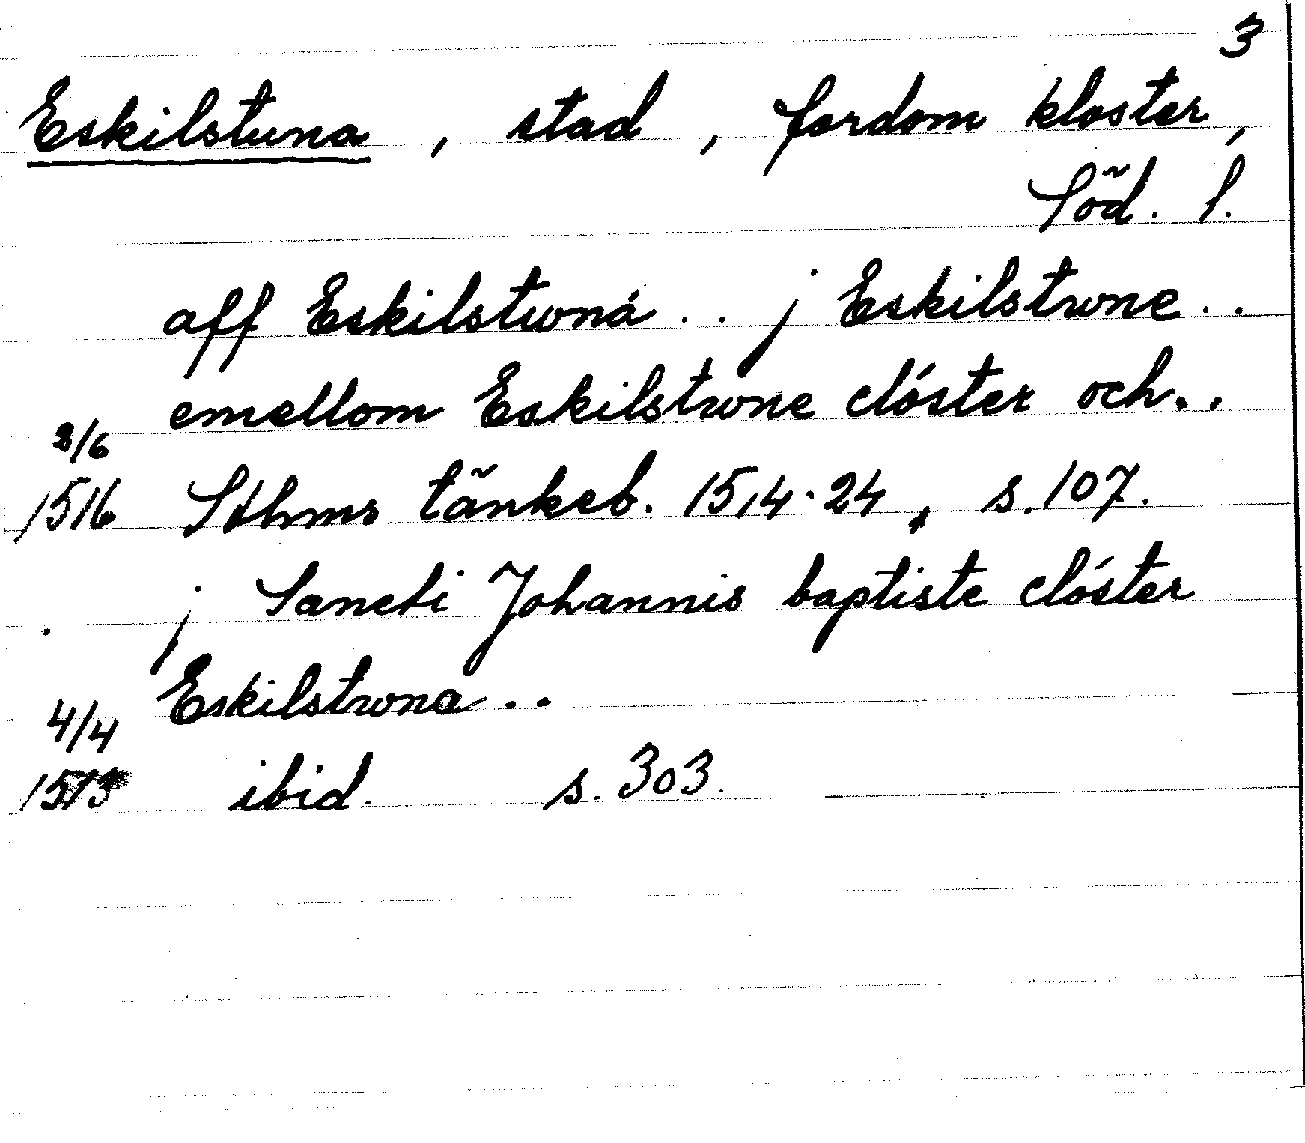 3
Eskilstuna, stad, fordom kloster,
Söd. l.
aff Eskilstwná .. j Eskilstwne ..
emellom Eskilstwne clóster och..
2/6
1516 Sthms tänkeb. 1514-24, s. 107.
j Sancti Johannis baptiste clóster
Eskilstwna ..
4/4
ibid. s. 303.